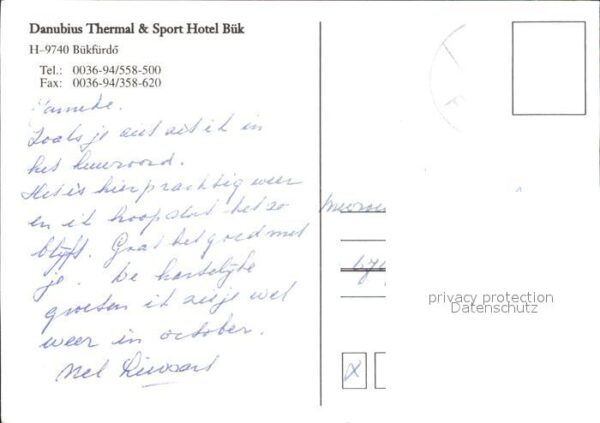 Danubius Thermal & Sport Hotel Bük
H–9740 Bükfürdő
Tel.: 0036-94/558-500
Fax: 0036-94/358-620
Hanneke.
Zoals je ziet zit ik in
het kuuroord.
Het is hier prachtig weer
en ik hoop dat het zo
blijft. Gaat het goed met
je. De hartelijke
groeten ik zie je wel
weer in october.
Nel
X
privacy protection
Datenschutz